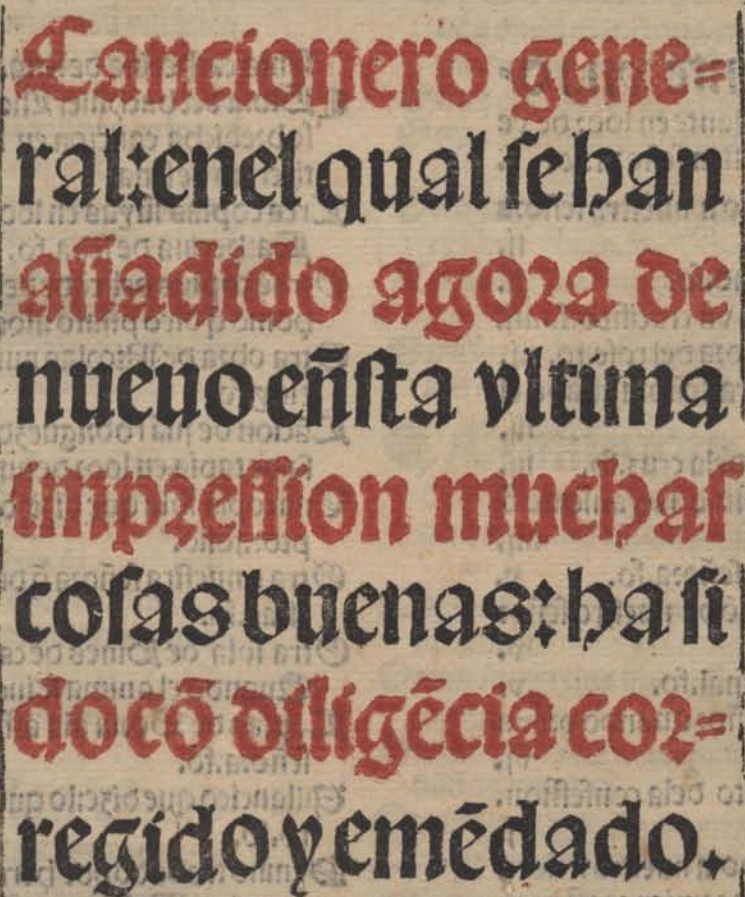 Cancionero gene=
ral: enel qual ſehan
añadido agora de
nueuo en̄ſta vltima
impreſſion muchaſ
coſas buenas: ha ſi
do cō diligēcia cor=
regido y emēdado.